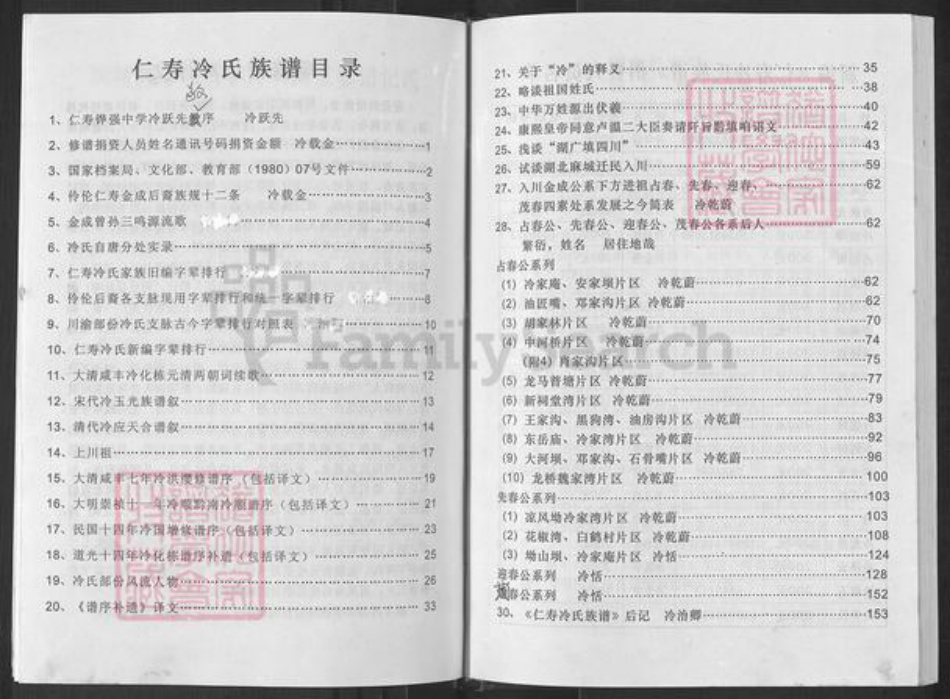 仁寿冷氏族谱目录
1、仁寿铧强中学冷跃先 序 冷跃先
2、修谱捐资人员姓名通讯号码捐资金额 冷载金 1
3、国家档案局、文化部、教育部（1980）07号文件 2
4、伶伦仁寿金成后裔族规十二条 冷载金 3
5、金成曾孙三鸣源流歌 4
6、冷氏自唐分处实录 5
7、仁寿冷氏家族旧编字辈排行 7
8、伶伦后裔各支脉现用字辈排行和统一字辈排行 8
9、川渝部份冷氏支脉古今字辈排行对照表 10
10、仁寿冷氏新编字辈排行 11
11、大清咸丰冷化栋元清两朝词续歌 12
12、宋代冷玉光族谱叙 13
13、清代冷应天合谱叙 14
14、上川祖 17
15、大清咸丰七年冷洪缨修谱序（包括译文） 19
16、大明崇祯十一年冷 黔南冷 谱序（包括译文） 21
17、民国十四年冷国增修谱序（包括译文） 23
18、道光十四年冷化栋谱序补遗（包括译文） 25
19、冷氏部份风流人物 26
20、《谱序补遗》译文 33
21、关于“冷”的释义 35
22、略谈祖国姓氏 38
23、中华万姓源出伏羲 40
24、康熙皇帝同意卢温二大臣奏请阡旨黔填 诏文 42
25、浅谈“湖广填四川” 43
26、试谈湖北麻城迁民入川 59
27、入川金成公系下方进祖占春、先春、迎春、 62
茂春四素处系发展之今简表 冷乾蔚
28、占春公、先春公、迎春公、茂春公各系后人 62
繁衍，姓名 居住地哉
占春公系列
(1) 冷家庵、安家坝片区 冷乾蔚 62
(2) 油匠嘴、邓家沟片区 冷乾蔚 62
(3) 胡家林片区 冷乾蔚 70
(4) 中河桥片区 冷乾蔚 74
(附4) 肖家沟片区 75
(5) 龙马普塘片区 冷乾蔚 77
(6) 新祠堂湾片区 冷乾蔚 79
(7) 王家沟、黑狗湾、油房沟片区 冷乾蔚 83
(8) 东岳庙、冷家湾片区 冷乾蔚 92
(9) 大河坝、邓家沟、石骨嘴片区 冷乾蔚 96
(10) 龙桥魏家湾片区 冷乾蔚 100
先春公系列 103
(1) 凉风坳冷家湾片区 冷乾蔚 103
(2) 花椒湾、白鹤村片区 冷乾蔚 108
(3) 坳山坝、冷家庵片区 冷恬 124
迎春公系列 冷恬 128
茂春公系列 冷恬 152
30、《仁寿冷氏族谱》后记 冷治卿 153
FamilySearch